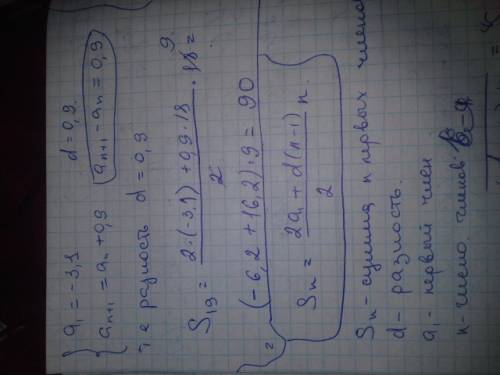 { a₁ = -3,1
{ aₙ₊₁ = aₙ + 0,9
d = 0,9
aₙ₊₁ - aₙ = 0,9
те разность d = 0,9
S₁₉ = (2·(-3,1) + 0,9·18)/2 · 18 =
9
= (-6,2 + 16,2)·9 = 90
Sₙ = (2a₁ + d(n-1))/2 n
Sₙ - сумма n первых членов
d - разность.
a₁ - первый член
n - число членов